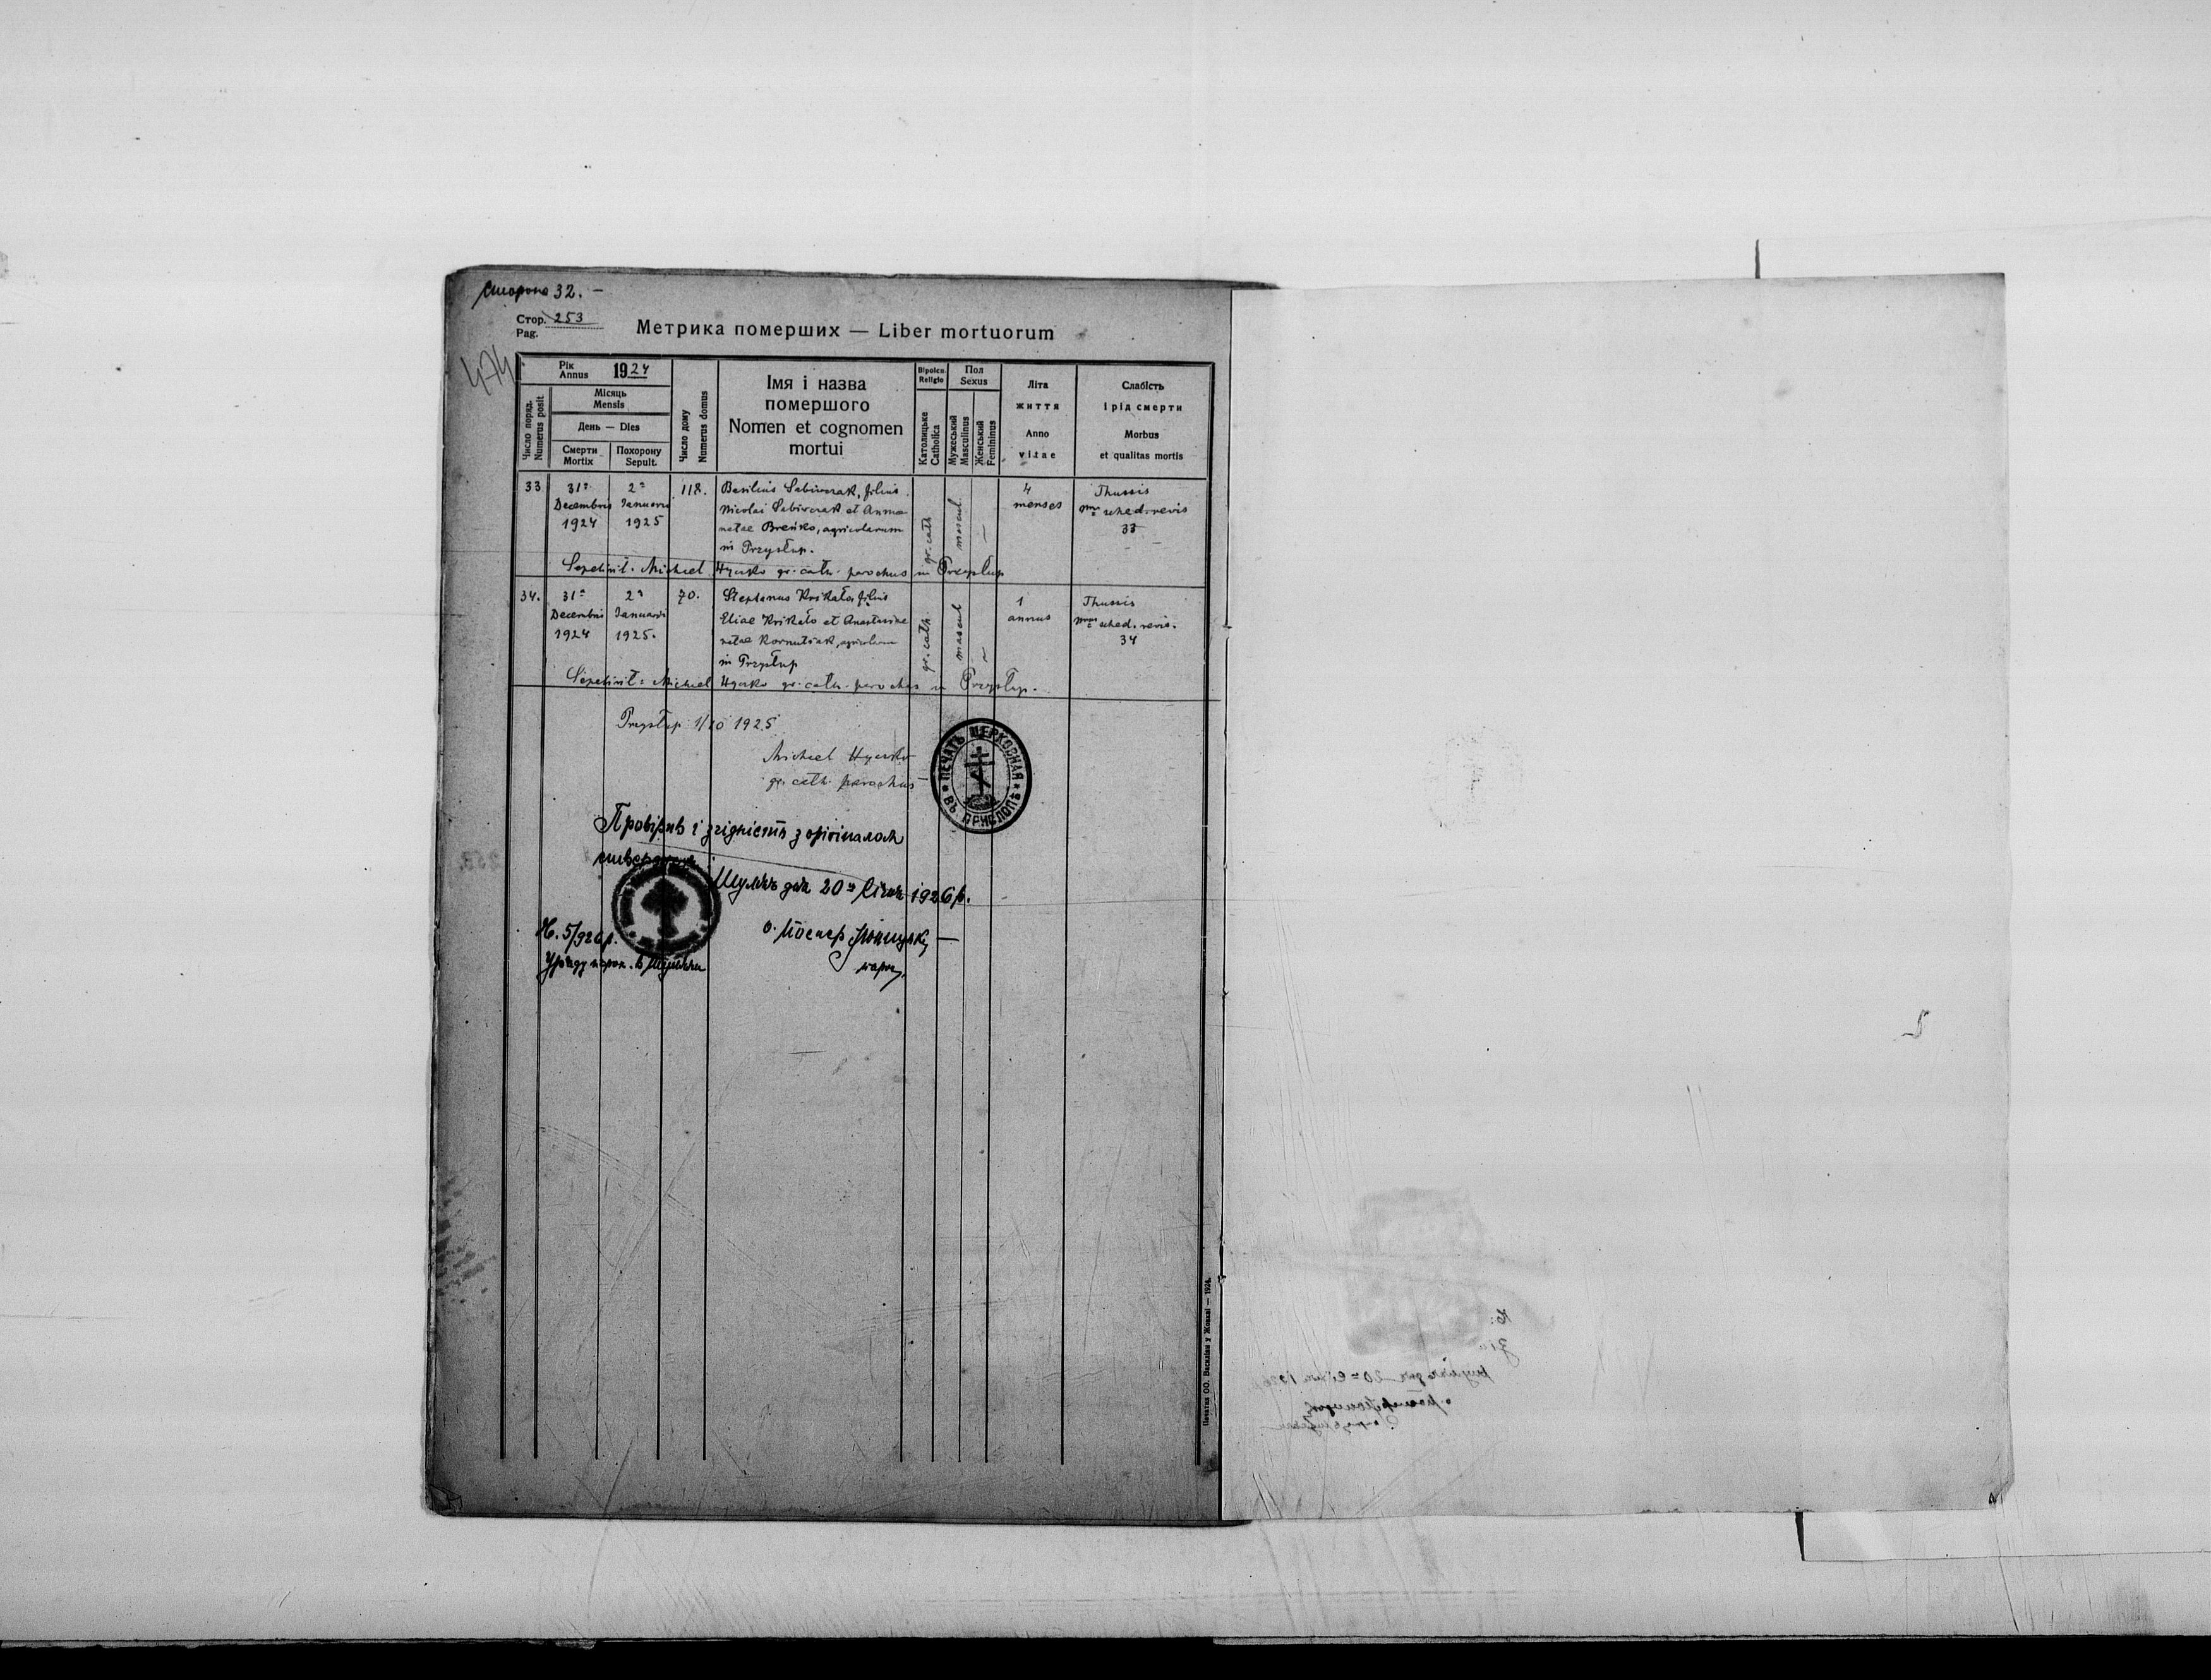 Сторона 32. –
Стор. 253
Pag.
474
Метрика померших — Liber mortuorum
Рік
Annus 1924
Місяць
Mensis
День — Dies
Число поряд.
Numerus posit
Смерти
Mortix
Похорону
Sepult.
Число дому
Numerus domus
Імя і назва
помершого
Nomen et cognomen
mortui
Віроісп.
Religio
Католицьке
Catholica
Пол
Sexus
Мужеський
Masculinus
Женський
Femininus
Літа
життя
Anno
vitae
Слабість
і рід смерти
Morbus
et qualitas mortis
33
31a
Decembris
1924
2a
Januarii
1925
118.
Basilius Sabivczak, filius
Nicolai Sabivczak et Annae
natae Breńko, agricolarum
in Przysłup.
gr. cath
mascul.
—
4
menses
Thussis
sched. revis
33
Sepelivit: Michael Hycko gr. cath. parochus in Przysłup
34.
31a
Decembris
1924
2a
Januarii
1925.
70.
Stephanus Krikało, filius
Eliae Krikało et Anastasiae
natae Kornutiak, agricolarum
in Przysłup
gr. cath.
mascul
1
annus
Thussis
sched. revis.
34
Sepelivit: Michael Hycko gr. cath. parochus in Przysłup.
Przysłup 1/10 1925
Michael Hycko
gr. cath. parochus
ПЕЧАТЬ ЦЕРКОВНАЯ ВЪ ПРИСЛОПѢ
Провірив і згідність з оріґіналом
стверджує
дня 20го Січня 1926 р.
Ч. 5/926 р.
о. Йосиф
Уряду парох. в
парох.
Печатня ОО. Василіян у Жовкві — 1924.